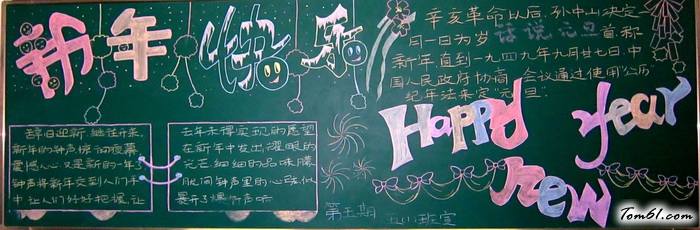 新年快乐
辛亥革命以后,孙中山决定
一月一日为岁 话说元旦 首,称
新年,直到一九四九年九月廿七日,中
国人民政府协商 会议通过使用"公历"
纪年法来定"元旦"
辞旧迎新,继往开来,
新年的钟声惊动夜幕
震憾人心,又是新的一年了
钟声将新年交到人们手
中,让人们好好把握,让
去年未得实现的愿望
在新年中发出耀眼的
光芒,细细的品味腾
Happy
year
new
第五期
Tom61.com